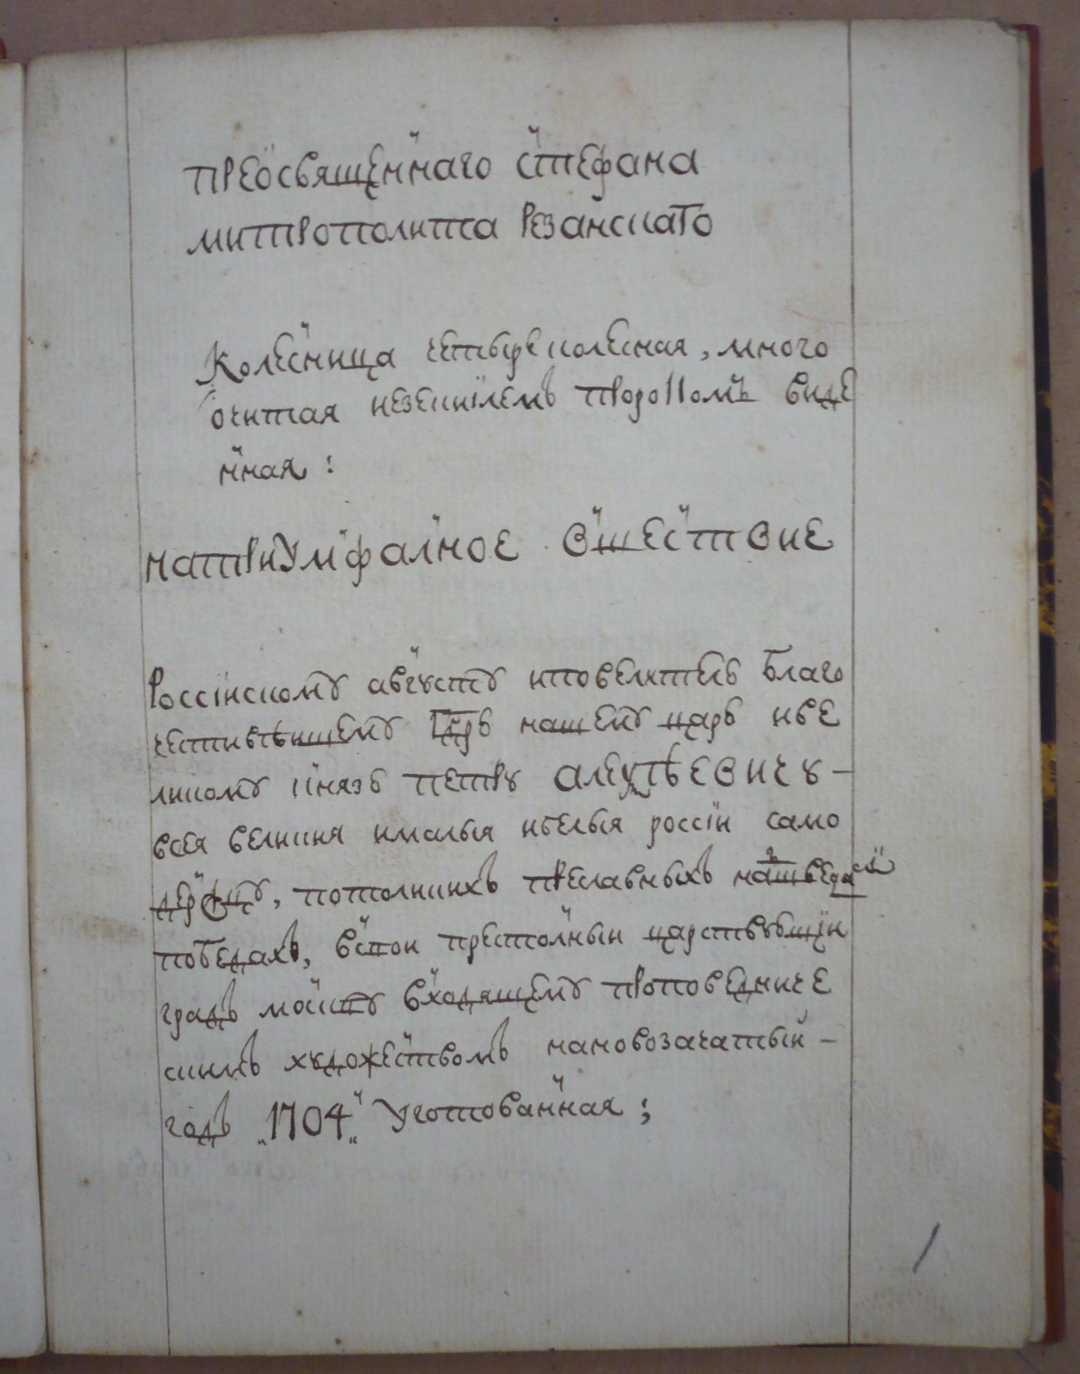 преосвященнаго стефана
митрополита резанскаго
Колесница четыреколесная, много
очитая иезекиілемъ пророкомъ виде
нная :
натриумфалное вшествие
Россіискому августу иповелителю благо
честивѣишему Гдрю нашему царю иве
ликому князю петру алеѯѣевичу –
всея великия ималыя ибелыя россіи само
держцу, потоликихъ преславныхъ нашведами
победахъ, всвои престолныи царствующїи
градъ москву входящему проповедниче
скимъ художествомъ нановозачатый –
годъ „1704“ уготованная ;
1